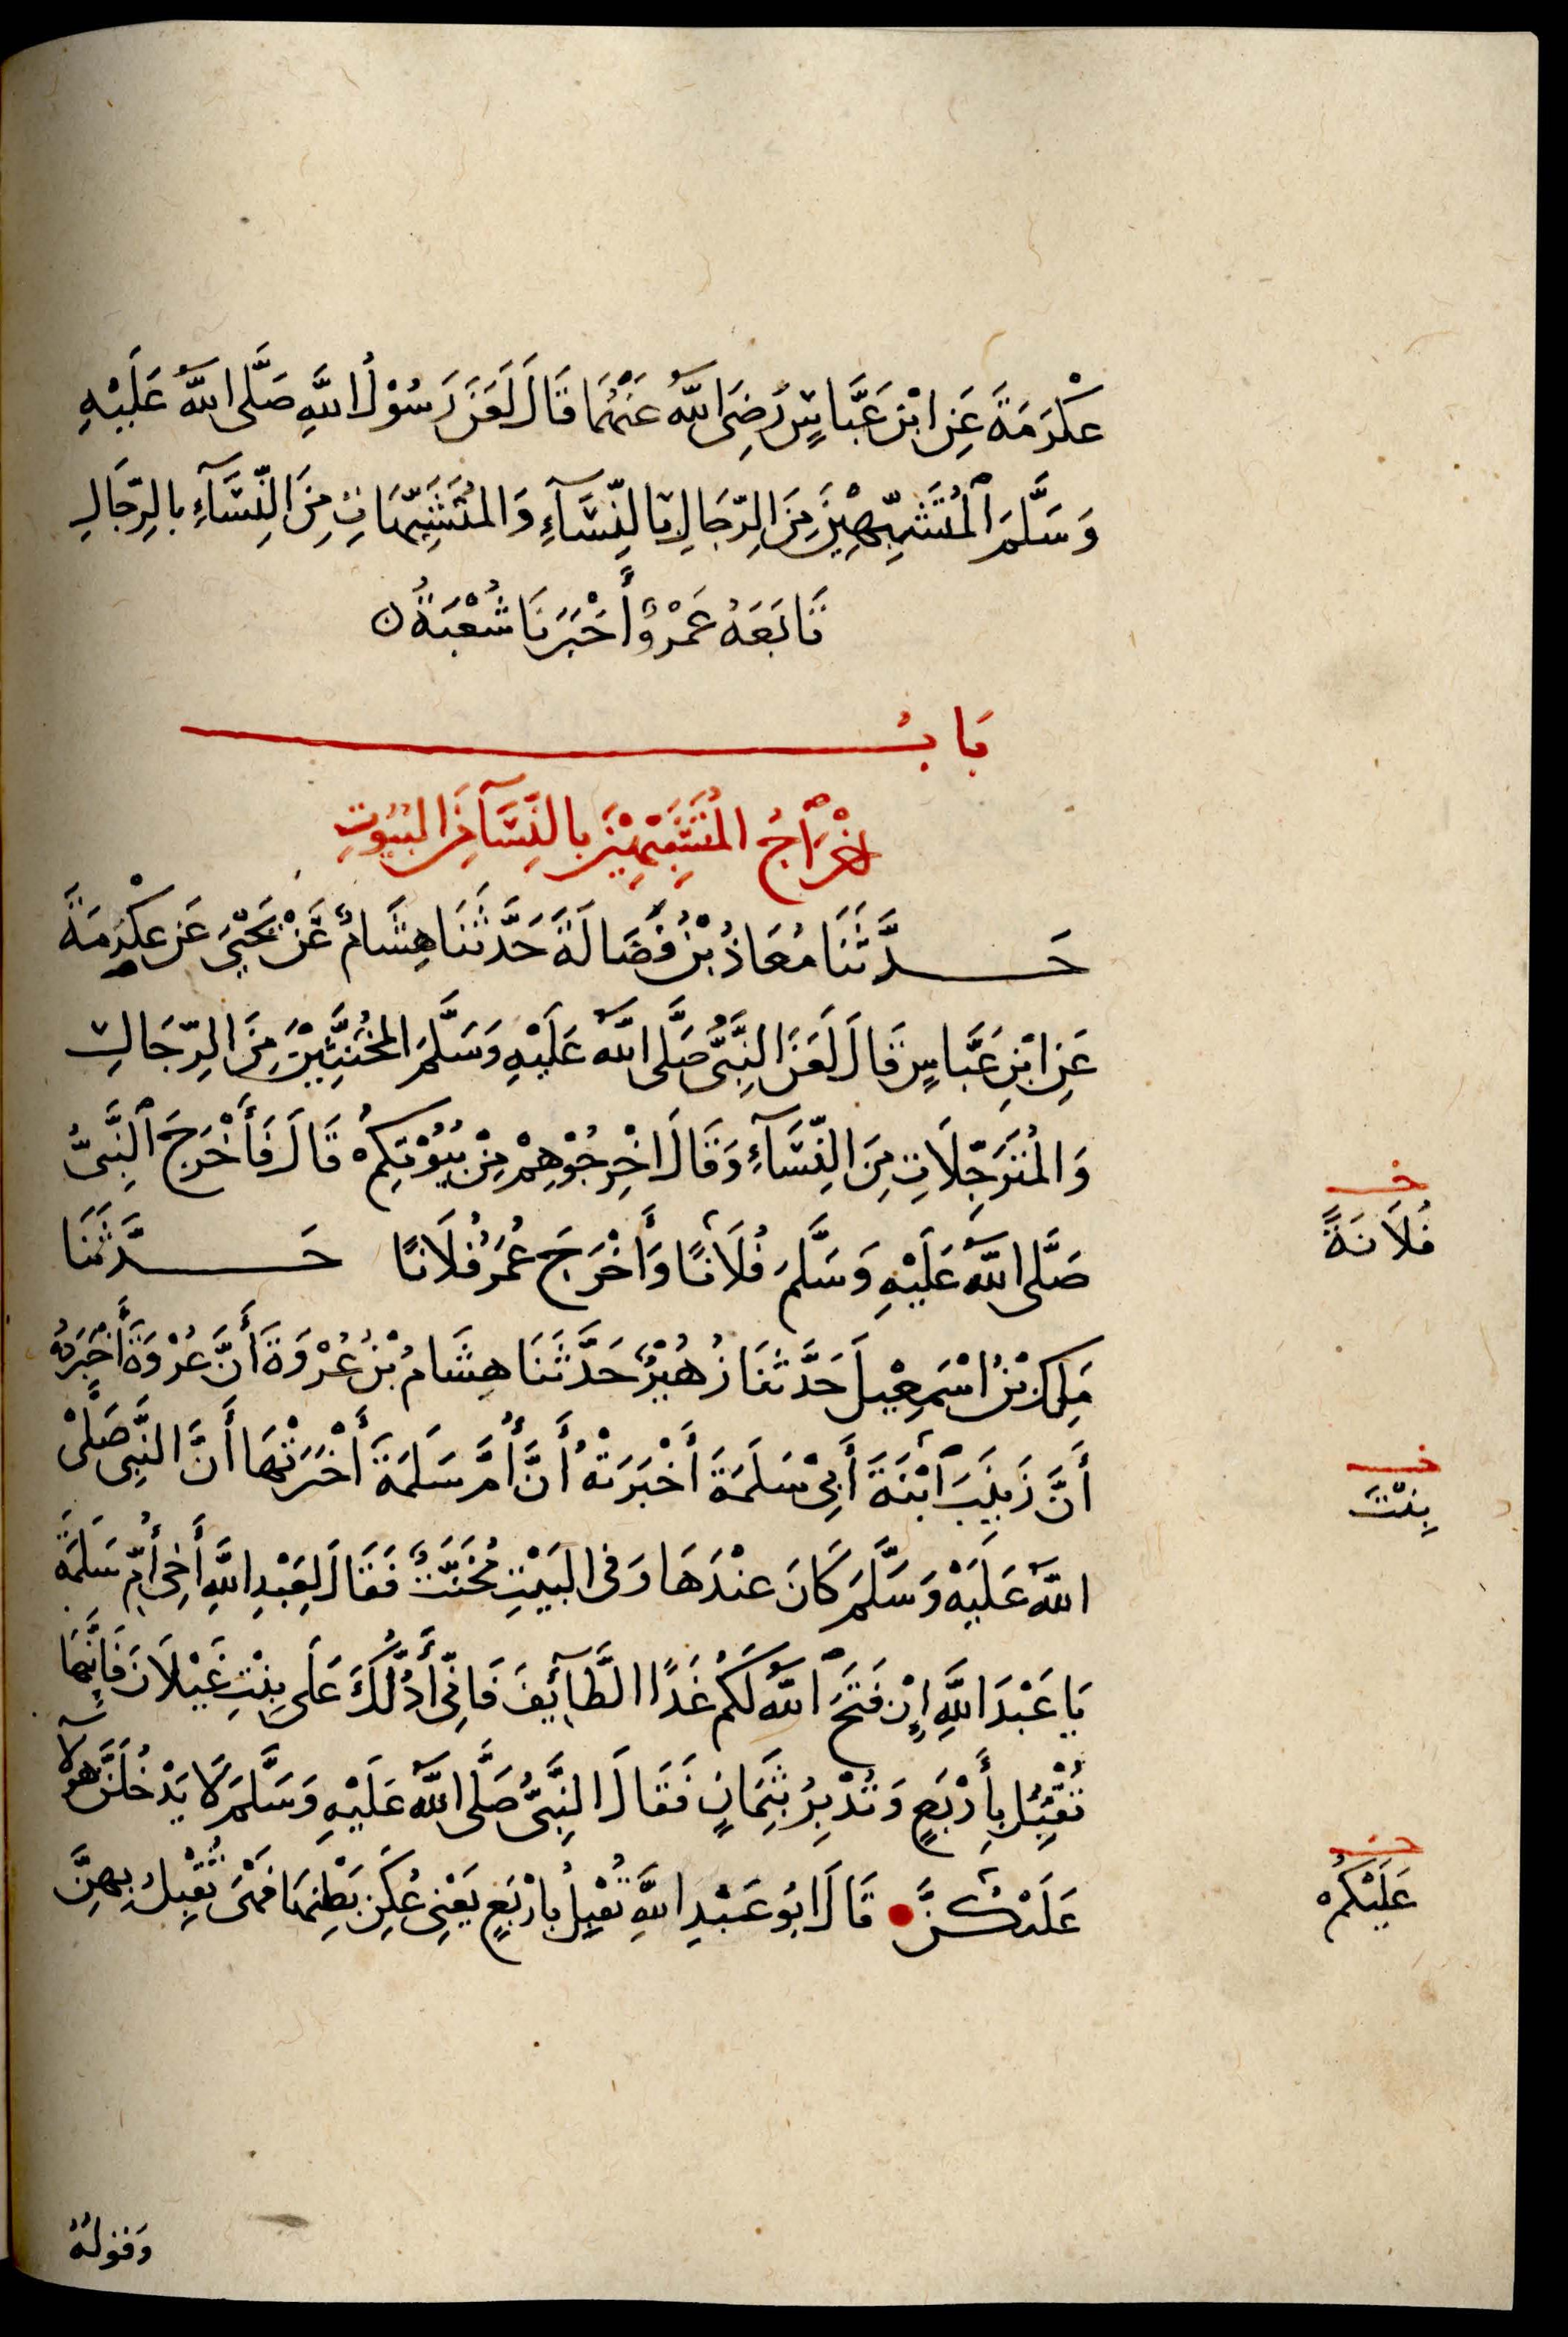 عِكْرَمَةَ عَنِ ابْنِ عَبَّاسٍ رَضِيَ اللَّهُ عَنْهُمَا قَالَ لَعَنَ رَسُوْلُ اللَّهِ صَلَّى اللَّهُ عَلَيْهِ
وَسَلَّمَ الْمُتَشَبِّهِيْنَ مِنَ الرِّجَالِ بالنِّسَآءِ وَالْمُتَشَبِّهَاتِ مِنَ النِّسَآءِ بالرِّجَالِ
تَابَعَهُ عَمْرٌو أَخْبَرَنَا شُعْبَةُ ن
بَابُ
إخْرَاجُ الْمُتَشَبِّهِيْنَ بالنِّسَآ مِنَ الْبُيُوتِ
حَدَّثَنَا مُعَاذُ بْنُ فَضَالَةَ حَدَّثَنَا هِشَامٌ عَنْ يَحْيَى عَنْ عِكْرِمَةَ
عَنِ ابْنِ عَبَّاسٍ قَالَ لَعَنَ النَّبِيُّ صَلَّى اللَّهُ عَلَيْهِ وَسَلَّمَ الْمُخَنَّثِيْنَ مِنَ الرِّجَالِ
وَالْمُتَرَجِّلَاتِ مِنَ النِّسَآءِ وَقَالَ اخْرِجُوْهِمْ مِنْ بُيُوْتِكُمْ قَالَ فَأَخْرَجَ النَّبِيُّ
صَلَّى اللَّهُ عَلَيْهِ وَسَلَّمَ فُلَانًا وَأَخْرَجَ عُمَرُ فُلَانًا حَدَّثَنَا
خ
فُلَانَةً
مَلِكُ بْنُ اسْمَعِيْلَ حَدَّثَنَا زُهَيْرٌ حَدَّثَنَا هِشَامُ بْنُ عُرْوَةَ أَنَّ عُرْوَةَ أَخْبَرَهُ
أَنَّ زَيْنَبَ ابْنَةَ أَبِيْ سَلَمَةَ أَخْبَرَتْهُ أَنَّ أُمَّ سَلَمَةَ أَخْبَرَتْهَا أَنَّ النَّبِيَّ صَلَّى
خ
بِنْتَ
اللَّهُ عَلَيْهِ وَسَلَّمَ كَانَ عِنْدَهَا وَفِي الْبَيْتِ مُخَنَّثٌ فَقَالَ لِعَبْدِ اللَّهِ أَخِي أُمِّ سَلَمَةَ
يَا عَبْدَ اللَّهِ إِنْ فَتَحَ اللَّهُ لَكُمْ غَدًا الطَّآئِفَ فَانِّي أَدُلُّكَ عَلَى بِنْتِ غَيْلَانَ فَإِنَّهَا
تُقْبِلُ بِأَرْبَعٍ وَتُدْبِرُ بِثَمَانٍ فَقَالَ النَّبِيُّ صَلَّى اللَّهُ عَلَيْهِ وَسَلَّمَ لَا يَدْخُلَنَّ هؤلآ
عَلَيْكُنَّ قَالَ ابُو عَبْدِ اللَّهِ تُقْبِلُ بارْبَعٍ يَعْنِي عُكَنِ بَطْنِهَا فَهْيَ تُقْبِلُ بِهِنَّ
خ
عَلَيْكُمْ
وَقَوْلُهُ